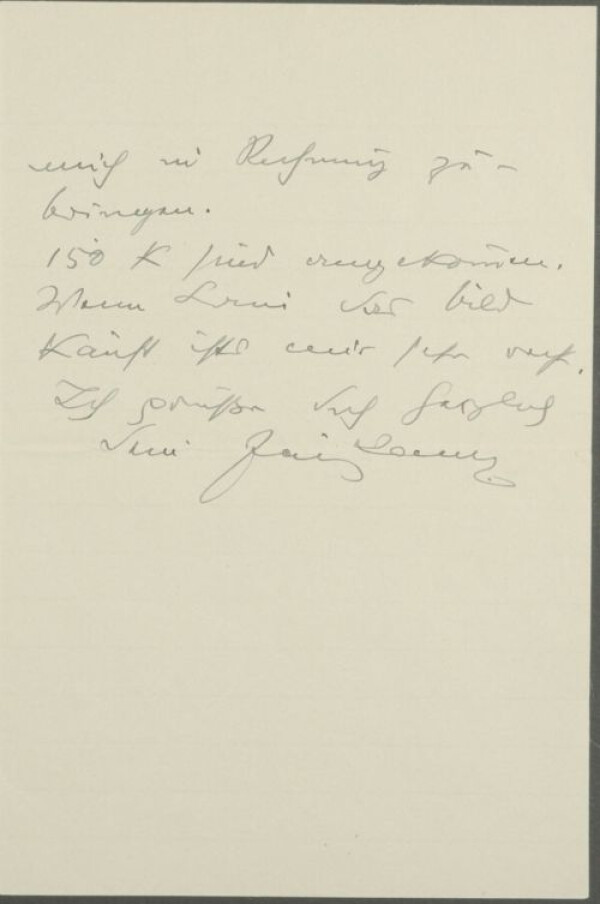 mich in Rechnung zu
bringen.
150 K sind eingekommen.
Wenn das Bild
kauft ists mir sehr recht.
Ich grüße Dich herzlich
Dein